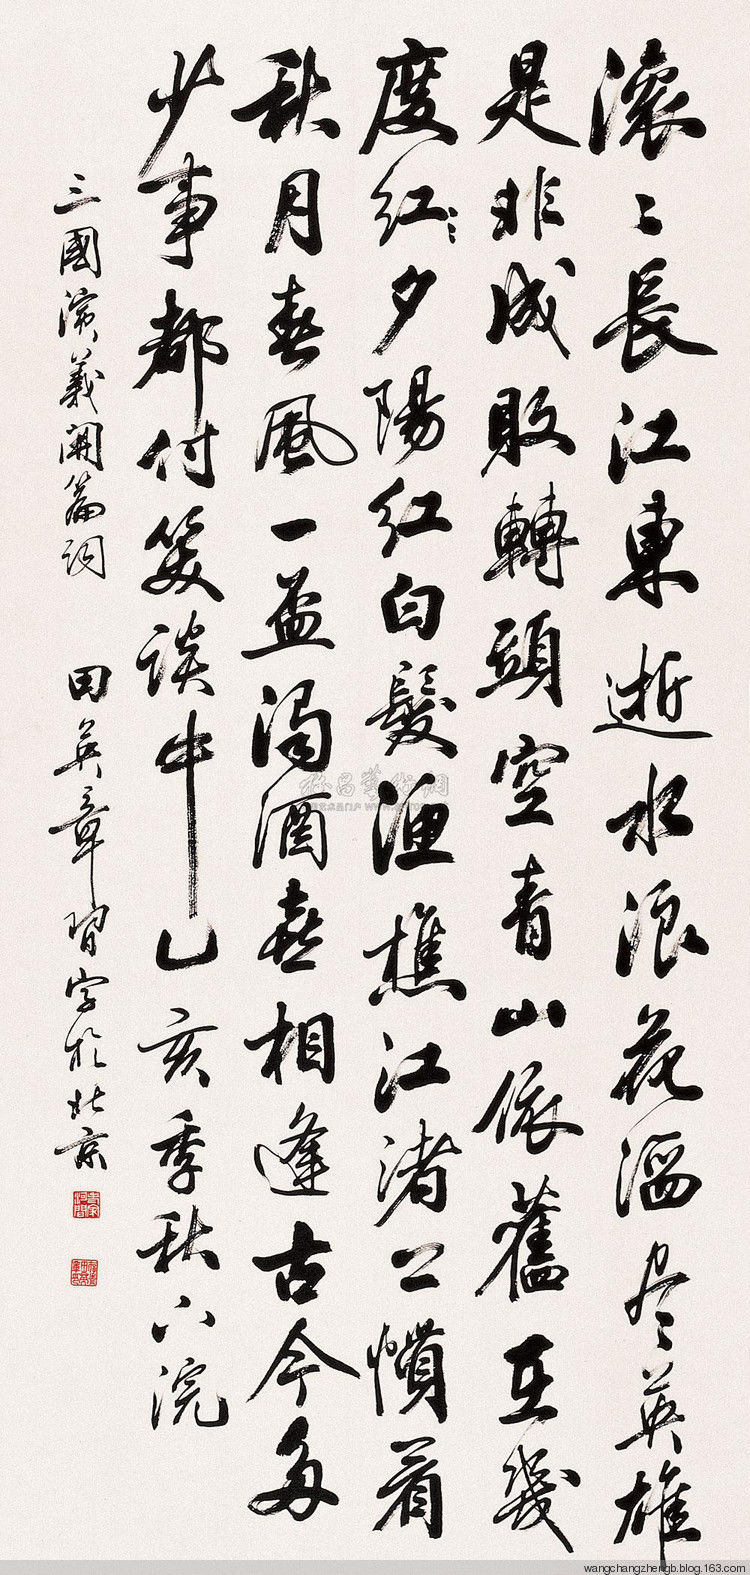 滚〻長江東逝水浪花淘尽英雄
是非成敗轉頭空青山依舊在幾
度红夕陽红白髮漁樵江渚上慣看
秋月春風一壺濁酒喜相逢古今多
少事都付笑談中乙亥季秋下浣
三國演義開篇詞 田英章習字於北京
wangchangzhengb.blog.163.com